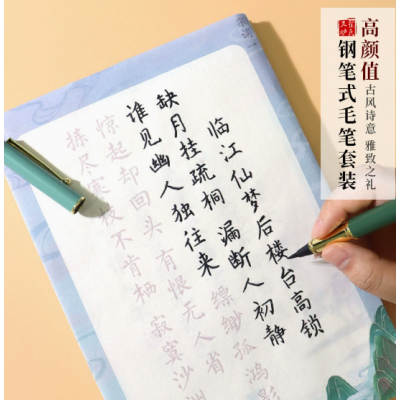 高颜值
钢笔式毛笔套装
古风诗意 雅致之礼
临江仙梦后楼台高锁
缺月挂疏桐 漏断人初静
谁见幽人独往来 缥缈孤鸿影
惊起却回头 有恨无人省
拣尽寒枝不肯栖 寂寞沙洲